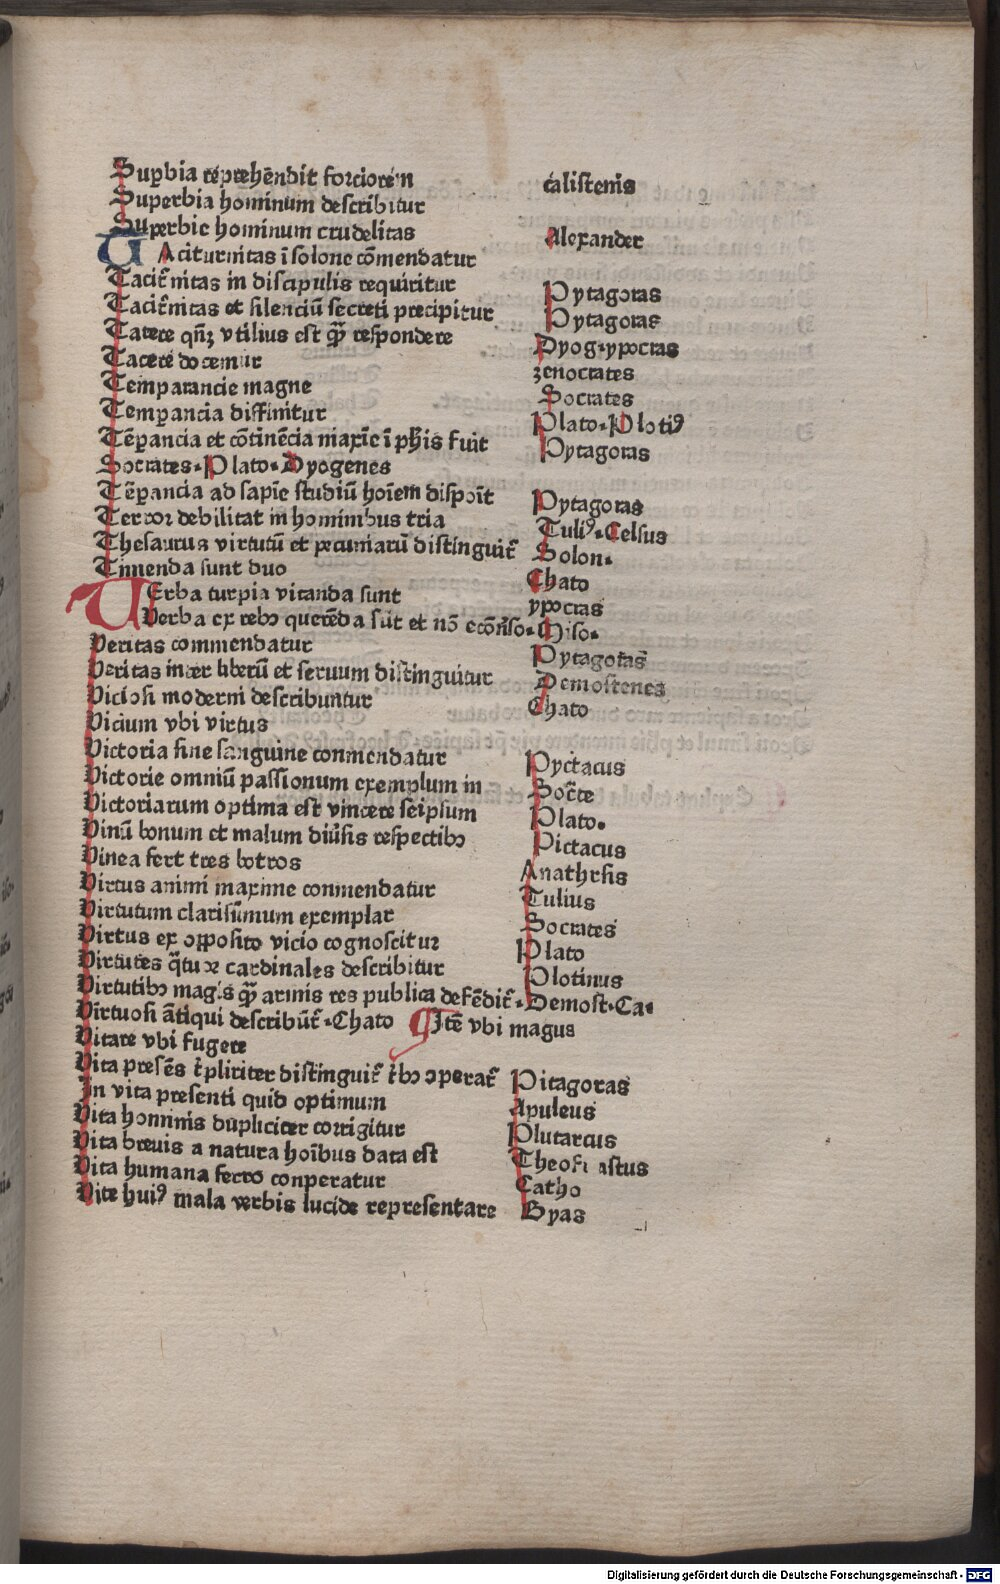 Sup̱bia rep̱rehēndit forciorem calistenis
Superbia hominum describitur
Superbie hominum crudelitas Alexander
TAciturnitas ī solone cōmendatur
Tacit̉nitas in discipulis requiritur Pytagoras
Tacit̉nitas et silenciū secreti precipitur Pytagoras
Tacere qn̄qꝫ vtilius est qꝫ̄ respondere Dyog·ypocras
Tacere docemur zenocrates
Temparancie magne Socrates
Temꝑancia diffinitur Plato·Plotiꝰ
Tēꝑancia et cōtinēcia maxīe ī ph̄is fuit Pytagoras
Socrates·Plato·Dyogenes
Tēꝑancia ad sapīe studiū hoīem dispoīt Pytagoras
Terror debilitat in hominibus tria Tuliꝰ·Celsus
Thesaurus virtutū et pecuniarū distinguit̉ Solon·
Timenda sunt duo Chato
VErba turpia vitanda sunt ypocras
Verba ex rebꝰ querēda sūt et nō ecōuerso·Miso·
Veritas commendatur Pytagoras
Veritas inter liberū et seruum distinguitur Demostenes
Viciosi moderni describuntur Chato
Vicium vbi virtus
Victoria sine sanguine conmendatur Pyctacus
Victorie omniū passionum exemplum in Soc̄te
Victoriarum optima est vincere seipsum Plato·
Vinū bonum et malum diu̇sis respectibꝰ Pictacus
Vinea fert tres botros Anathrsis
Virtus animi maxime conmendatur Tulius
Virtutum clarissimum exemplar Socrates
Virtus ex opposito vicio cognoscitur Plato
Virtutes q̄tuor cardinales describitur Plotinus
Virtutibꝰ magis qꝫ̄ armis res publica defēdit̉·Demost·Ca·
Virtuosi ātiqui describūt̉·Chato ¶Itē vbi magus
Vitare vbi fugere
Vita presēs t̉pliciter distinguit̉ t̉bꝰ ꝯperat̉ Pitagoras
In vita presenti quid optimum Apuleus
Vita hominis dupliciter corrigitur Plutarcus
Vita breuis a natura hoībus data est Theofrastus
Vita humana ferro conperatur Catho
Vite huiꝰ mala verbis lucide representare Byas
Digitalisierung gefördert durch die Deutsche Forschungsgemeinschaft - DFG